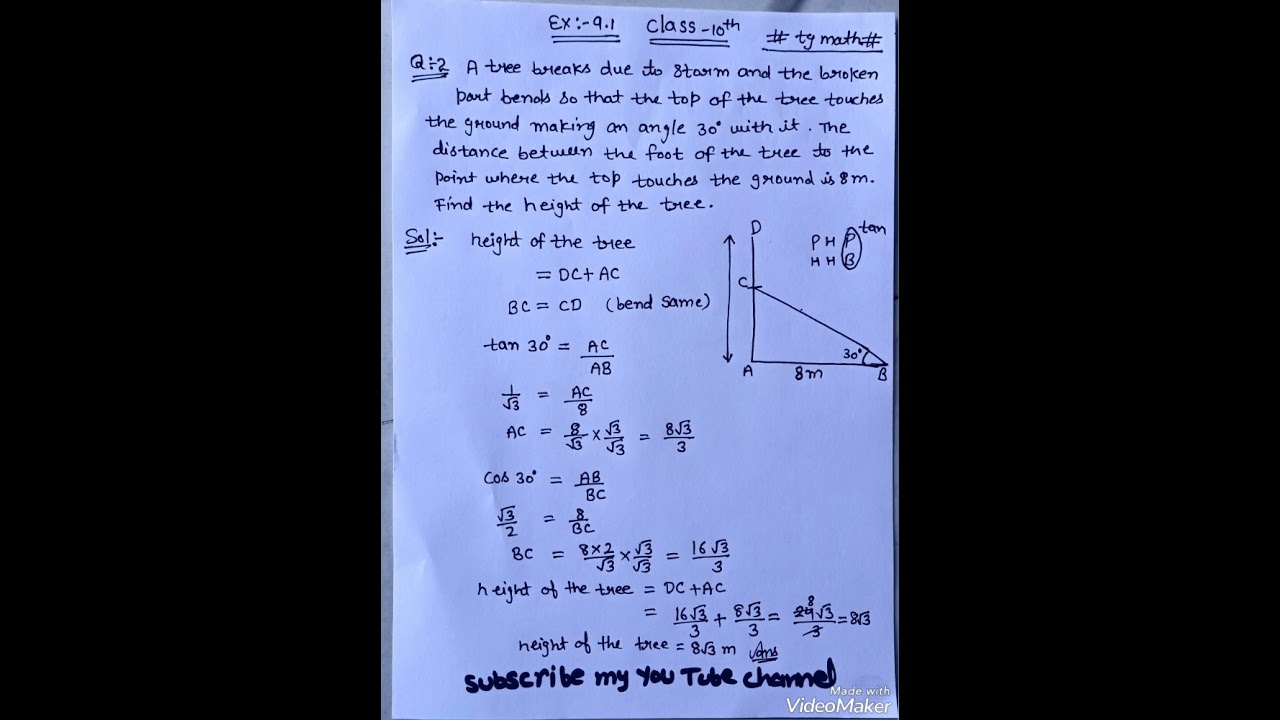 Ex:-9.1 Class-10th # tg math#
Q:2 A tree breaks due to storm and the broken
part bends so that the top of the tree touches
the ground making an angle 30° with it. The
distance between the foot of the tree to the
point where the top touches the ground is 8m.
Find the height of the tree.
Sol:- height of the tree
= DC+AC
BC = CD (bend same)
tan 30° = AC/AB
1/√3 = AC/8
AC = 8/√3 × √3/√3 = 8√3/3
Cos 30° = AB/BC
√3/2 = 8/BC
BC = 8×2/√3 × √3/√3 = 16√3/3
height of the tree = DC+AC
= 16√3/3 + 8√3/3 = 24√3/3 = 8√3
8
height of the tree = 8√3 m Ans
D
C
A
8m
B
30°
P H P tan
H H B
subscribe my You Tube channel
Made with
VideoMaker